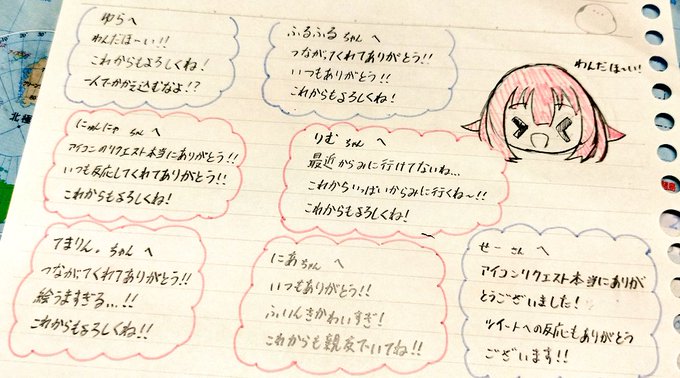 ゆらへ
わんだほーい!!
これからもよろしくね!
一人でかかえ込むなよ!?
ふるふるちゃんへ
つながってくれてありがとう!!
いつもありがとう!!
これからもよろしくね!
わんだほーい!
にゃんにゃちゃんへ
アイコンのリクエスト本当にありがとう!!
いつも反応してくれてありがとう!!
これからもよろしくね!
りむちゃんへ
最近からみに行けてないね…
これからいっぱいからみに行くね〜!!
これからもよろしくね!
てまりん。ちゃんへ
つながってくれてありがとう!!
絵うますぎる…!!
これからもよろしくね!!
にあちゃんへ
いつもありがとう!!
ふいんきかわいすぎ!
これからも親友でいてね!!
せーさんへ
アイコンリクエスト本当にありが
とうございました!
ツイートへの反応もありがとう
ございます!!
北極